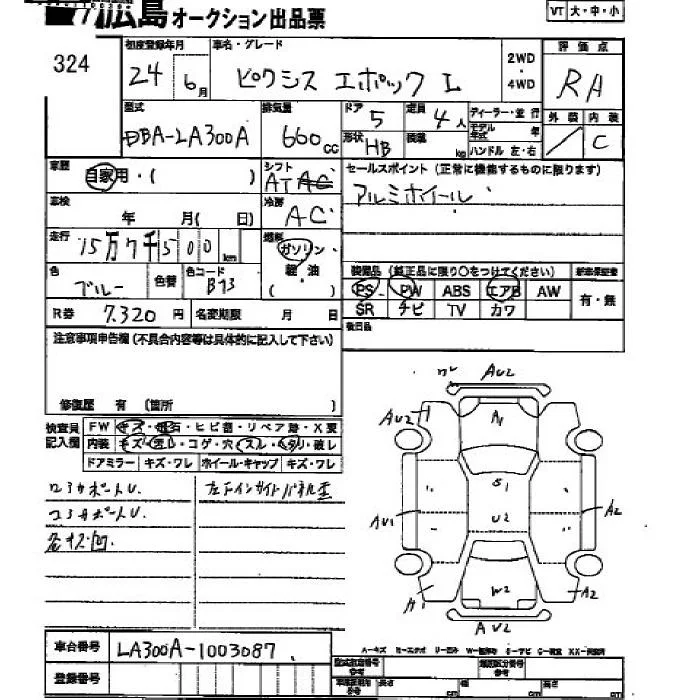 広島 オークション出品票
VT 大・中・小
324
初度登録年月 車名・グレード 2WD・4WD 評価点
24年 6月 ピクシス エポック L RA
型式 排気量 ドア 定員 ディーラー・並行 外装 内装
DBA-LA300A 660cc 5 4人 モデル年式 年 / C
形状 HB 積載 kg ハンドル 左・右
車歴 自家用・( ) シフト AT AC セールスポイント(正常に機能するものに限ります)
アルミホイール
車検 年 月( 日) 冷房 AC
走行 15万7千500km 燃料 ガソリン・軽・油 ( )
色 ブルー 色替 色コード B73
装備品(純正品に限り○をつけてください) 新車保証書
PS PW ABS エアB AW 有・無
SR ナビ TV カワ
R券 7.320円 名変期限 月 日 後日品
注意事項申告欄(不具合内容等は具体的に記入して下さい)
修復歴 有(箇所 )
検査員記入欄 FW キズ・飛石・ヒビ割・リペア跡・X要
内装 キズ・ヨゴレ・コゲ・穴・スレ・ヘタリ・破レ
ドアミラー キズ・ワレ ホイール・キャップ キズ・ワレ
コアサポートU. 左下インサイドパネル歪
コアサポートU.
各キズ凹
AU2
AU2 A1
S1
AU1 U2 A2
A1 W2 A2
AU2
車台番号 LA300A-1003087
登録番号